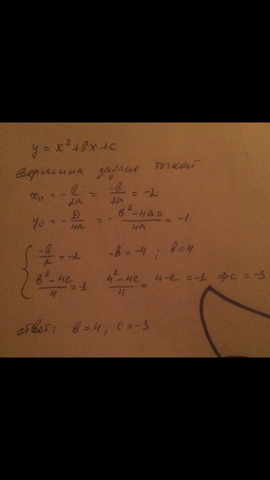 y = x² + bx + c
вершина задана точкой
x₀ = -b/2a = -b/2a = -2
y₀ = -D/4a = -(b²-4ac)/4a = -1
{ -b/2 = -2 -b = -4 ; b = 4
(b²-4c)/4 = -1 (4²-4c)/4 = 4-c = -1 ⇒ c = -3
ответ: b = 4, c = -3